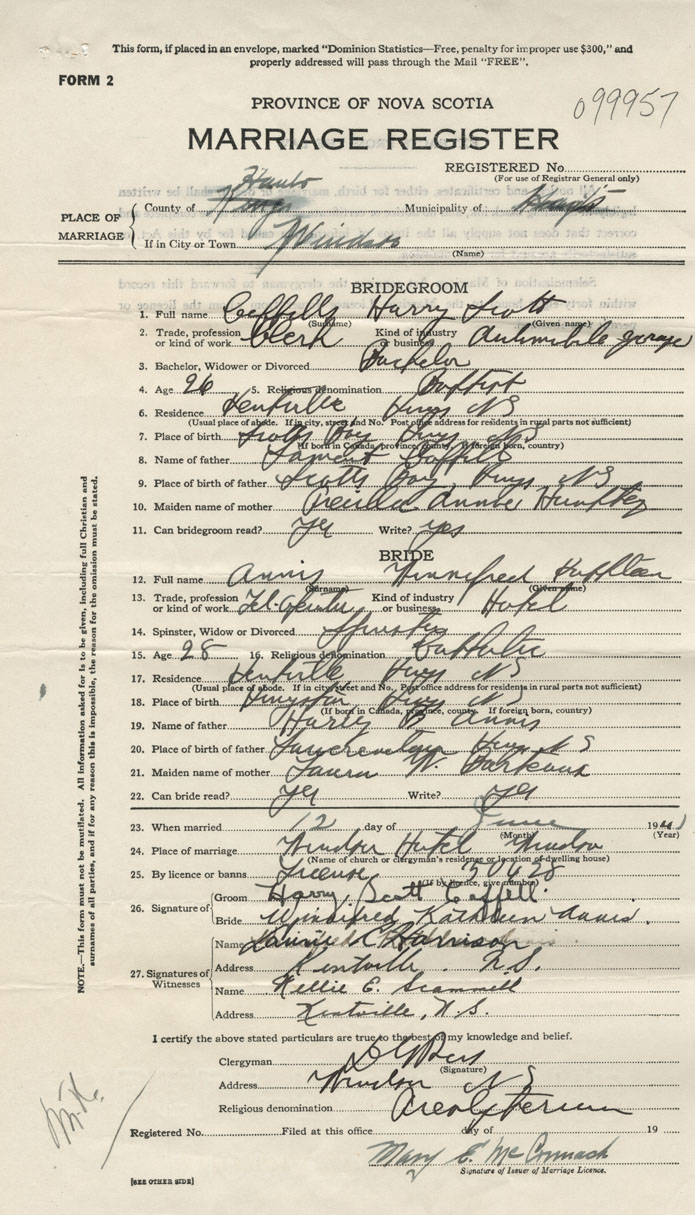 This form, if placed in an envelope, marked "Dominion Statistics—Free, penalty for improper use $300," and
properly addressed will pass through the Mail "FREE".
FORM 2
099957
PROVINCE OF NOVA SCOTIA
MARRIAGE REGISTER
REGISTERED No.
(For use of Registrar General only)
PLACE OF MARRIAGE
Hants
County of Kings Municipality of Hants
If in City or Town Windsor
(Name)
BRIDEGROOM
1. Full name Coffill Harry Scott
(Surname) (Given name)
2. Trade, profession or kind of work Clerk Kind of industry or business Automobile garage
3. Bachelor, Widower or Divorced Bachelor
4. Age 26 5. Religious denomination Baptist
6. Residence Kentville Kings NS
(Usual place of abode. If in city, street and No. Post office address for residents in rural parts not sufficient)
7. Place of birth Scotts Bay Kings NS
(If born in Canada, province, county. If foreign born, country)
8. Name of father Coffill
9. Place of birth of father Scotts Bay, Kings NS
10. Maiden name of mother Annie
11. Can bridegroom read? yes Write? yes
BRIDE
12. Full name Annis Winnifred Kathleen
(Surname) (Given name)
13. Trade, profession or kind of work Tel. Operator Kind of industry or business Hotel
14. Spinster, Widow or Divorced Spinster
15. Age 28 16. Religious denomination
17. Residence Kentville Kings NS
(Usual place of abode. If in city, street and No. Post office address for residents in rural parts not sufficient)
18. Place of birth Kingston Kings NS
(If born in Canada, province, county. If foreign born, country)
19. Name of father Harley B Annis
20. Place of birth of father Kings NS
21. Maiden name of mother Laura W.
22. Can bride read? yes Write? yes
23. When married 12 day of June 1941
(Month) (Year)
24. Place of marriage Windsor Hotel Windsor
(Name of church or clergyman's residence or location of dwelling house)
25. By licence or banns License 50428
(If by licence, give number)
26. Signature of
Groom Harry Scott Coffill
Bride Winnifred Kathleen Annis.
27. Signatures of Witnesses
Name Harrison
Address Kentville. N.S.
Name Nellie E. Scammell
Address Kentville, N.S.
I certify the above stated particulars are true to the best of my knowledge and belief.
Clergyman
(Signature)
Address Windsor NS
Religious denomination Presbyterian
Registered No. Filed at this office day of 19
Mary E. McCormack
Signature of Issuer of Marriage Licence.
[SEE OTHER SIDE]
NOTE.—This form must not be mutilated. All information asked for is to be given, including full Christian and
surnames of all parties, and if for any reason this is impossible, the reason for the omission must be stated.